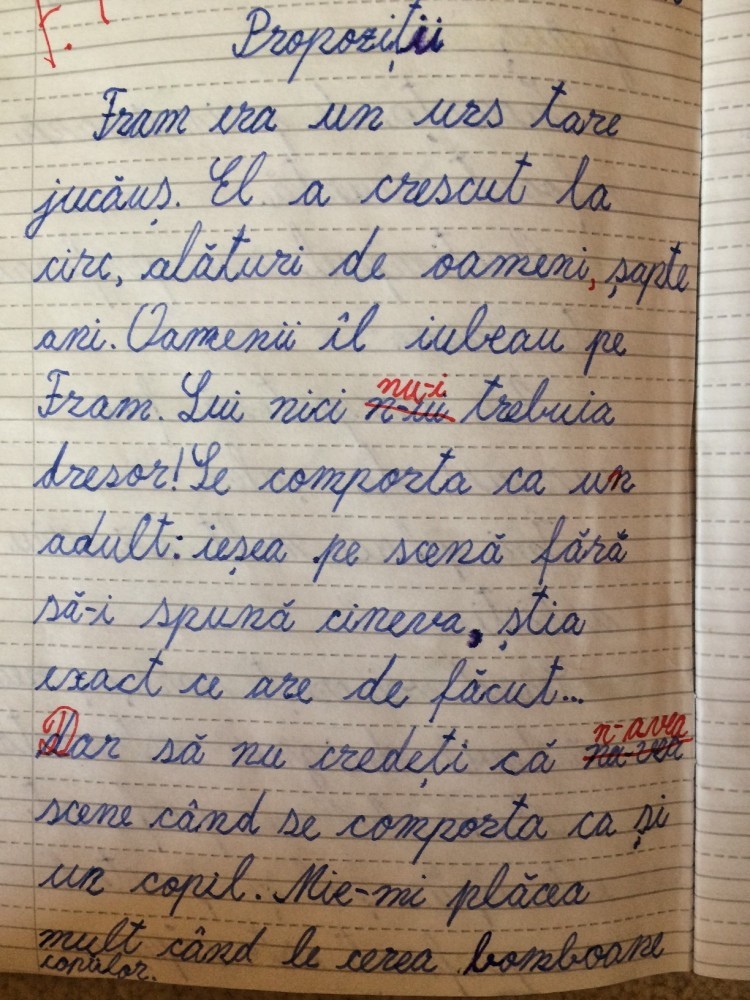 F.
Propoziții
Fram era un urs tare
jucăuș. El a crescut la
circ, alături de oameni, șapte
ani. Oamenii îl iubeau pe
nu-i
Fram. Lui nici n-ui trebuia
dresor! Se comporta ca un
adult: ieșea pe scenă fără
să-i spună cineva, știa
exact ce are de făcut...
n-avea
Dar să nu credeți că
scene când se comporta ca și
un copil. Mie-mi plăcea
mult când le cerea bomboane
copiilor.